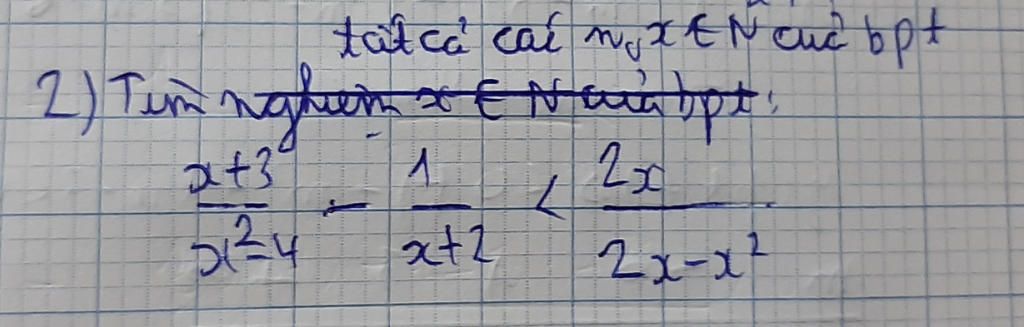 tất cả các n₀ x ∈ N của bpt
2) Tìm nghiệm x ∈ N của bpt:
x+3/x²-4 - 1/x+2 < 2x/2x-x²